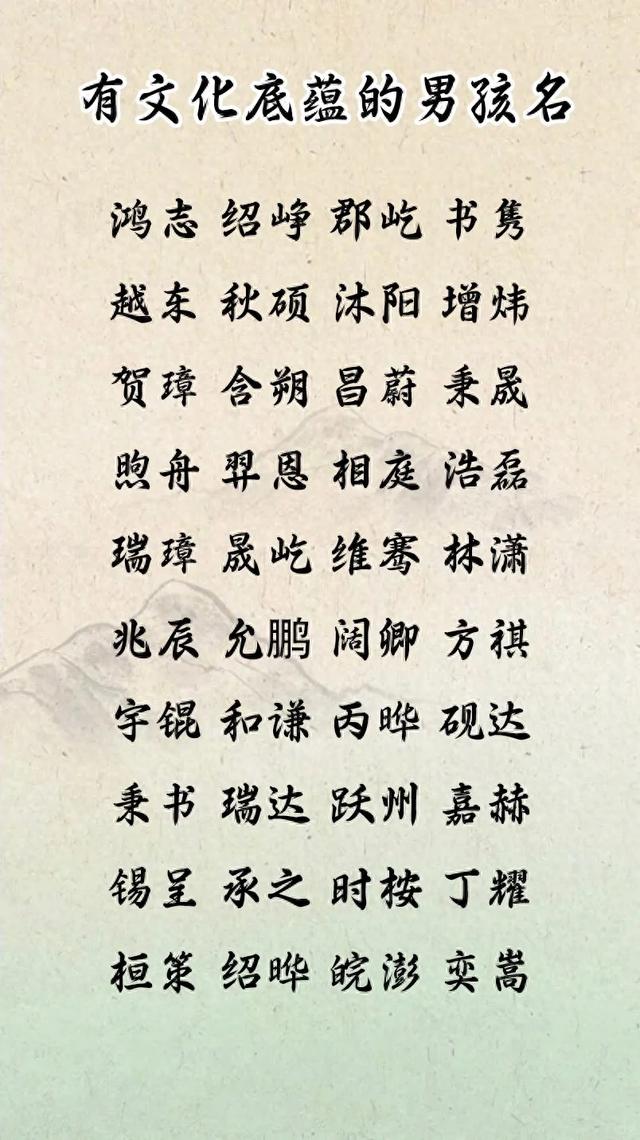 有文化底蕴的男孩名
鸿志 绍峥 郡屹 书隽
越东 秋硕 沐阳 增炜
贺璋 含朔 昌蔚 秉晟
煦舟 羿恩 相庭 浩磊
瑞璋 晟屹 维骞 林潇
兆辰 允鹏 阔卿 方祺
宇锟 和谦 丙晔 砚达
秉书 瑞达 跃州 嘉赫
锡呈 承之 时桉 丁耀
桓策 绍晔 皖澎 奕嵩